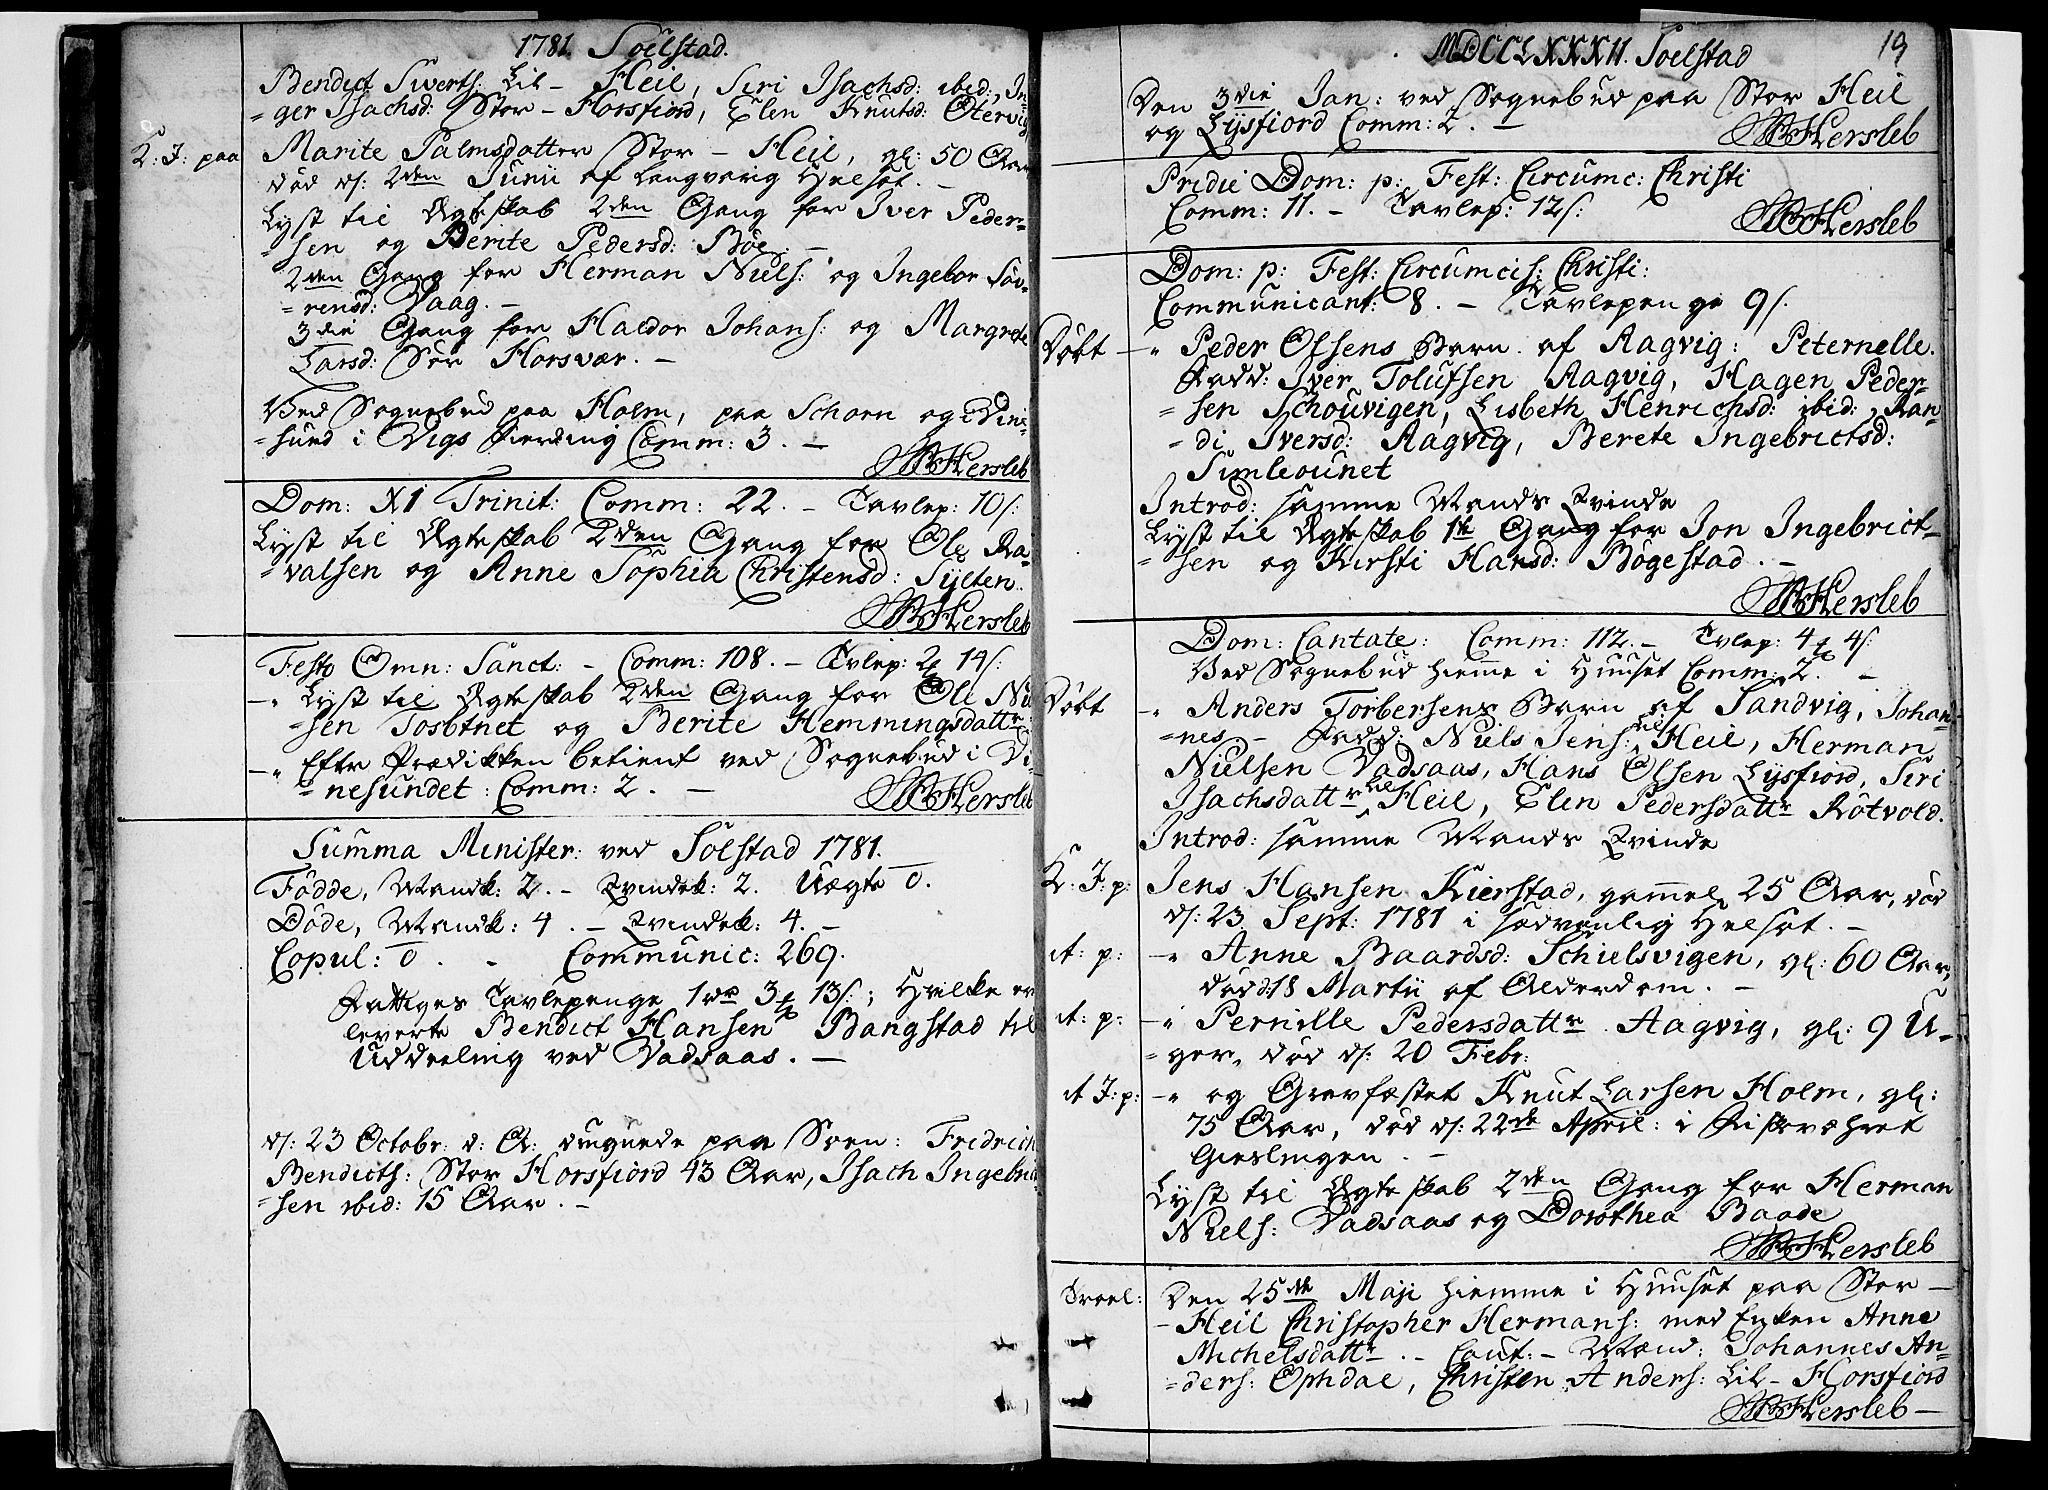 1781. Soelstad.
Bendict Siverts: Lil- Heil, Siri Isachsd: ibid:, In-
=ger Isachsd: Stor-Horsfiord, Elen Knutsd: Otervig
K: J: paa Marite Palmsdatter Stor-Heil, gl: 50 Aar
død d: 2den Junii af langvarig Helsot. -
Lyst til Ægteskab 2den Gang for Iver Peder-
=sen og Berite Pedersd: Böe. -
2den Gang for Herman Niels: og Ingebor Söv-
=rensd: Vaag. -
3die Gang for Haldor Johans: og Margrete
Larsd: Sör Horsvær. -
Ved Sognebud paa Holm, paa Schorn og Vine-
=sund i Vigs Fierding Comm: 3. -
Hersleb
Dom: XI Trinit: Comm: 22. - Tavlep: 10 s:
Lyst til Ægteskab 2den Gang for Ole Ra-
=valsen og Anne Sophia Christensd: Sylten.
Hersleb
Festo Omn: Sanct: - Comm: 108. - Tvlep: 2 14 s:
-" Lyst til Ægteskab 2den Gang for Ole Niel
=sen Tosbtnet og Berite Hemmingsdattr
-" Eftr Prædikken betient ved Sognebud i Vi-
=nesundet: Comm: 2. -
Hersleb
Summa Minister: ved Solstad 1781.
Födde, Mandk: 2. - Qvindek: 2. Uægte 0.
Döde, Mandk: 4. - Qvindek: 4. -
Copul: 0. - Communic: 269.
Fattiges Tavlepenge 3 13 s:; Hvilke er
leverte Bendict Hansen Bangstad til
Uddeeling ved Vadsaas. -
d: 23 Octobr: d: A: paa Soen: Fridrich
Bendicts: Stor Horsfiord 43 Aar, Isach Ingebrict
=sen ibid: 15 Aar. -
MDCCLXXXII. Soelstad 19
Den 3die Jan: ved Sognebud paa Stor Heil
og Lysfiord Comm: 2. -
Hersleb
Pridie Dom: p: Fest: Circumc: Christi
Comm: 11. - Tavlep: 12 s:
Hersleb
Dom: p: Fest: Circumcis: Christi:
Communicant: 8. - Tavlepenge 9 s.
Döbt -" Peder Olsens Barn af Aagvig: Peternelle.
Fadd: Iver Tolufsen Aagvig, Hagen Peder-
=sen Schouvigen, Lisbeth Henrichsd: ibid:, Ran-
=di Iversd: Aagvig, Berete Ingebrictsd:
Simleounet
Introd: samme Mands Qvinde
Lyst til Ægteskab 1te Gang for Jon Ingebrict-
=sen og Kirsti Hansd: Bögestad. -
Hersleb
Dom: Cantate: Comm: 112. - Tvlep: 4 4 s:
Ved Sognebud hiemme i Huuset Comm: 2. -
Döbt -" Anders Torbersens Barn af Sandvig, Johan-
=nes. - Fadd: Niels Jens: Lil Heil, Herman
Nielsen Vadsaas, Hans Olsen Lysfiord, Siri
Isachsdattr Lil Heil, Elen Pedersdattr Rötvold.
Introd: samme Mands Qvinde
K: J: p: Jens Hansen Kierstad, gammel 25 Aar, död
d: 23 Sept: 1781 i sædvanlig Helsot. -
it: p: -" Anne Baardsd: Schielsvigen, gl: 60 Aar,
död: 18 Martii af Alderdom. -
it: p: -" Pernille Pedersdattr Aagvig, gl: 9 U-
=ger, död d: 20 Febr:
it J: p: -" og Gravfæstet Knut Larsen Holm, gl:
75 Aar, död d: 22de April: i Fiskeværet
Gieslingen. -
Lyst til Ægteskab 2den Gang for Herman
Niels: Vadsaas og Dorothea Baade
Hersleb
Troel: Den 25de Maji hiemme i Huuset paa Stor-
-Heil Christopher Hermans: med Enken Anne
Michelsdattr. - Caut: - Mænd: Johannes An-
=ders: Ophdal, Christen Anders: Lil-Horsfiord
Hersleb -